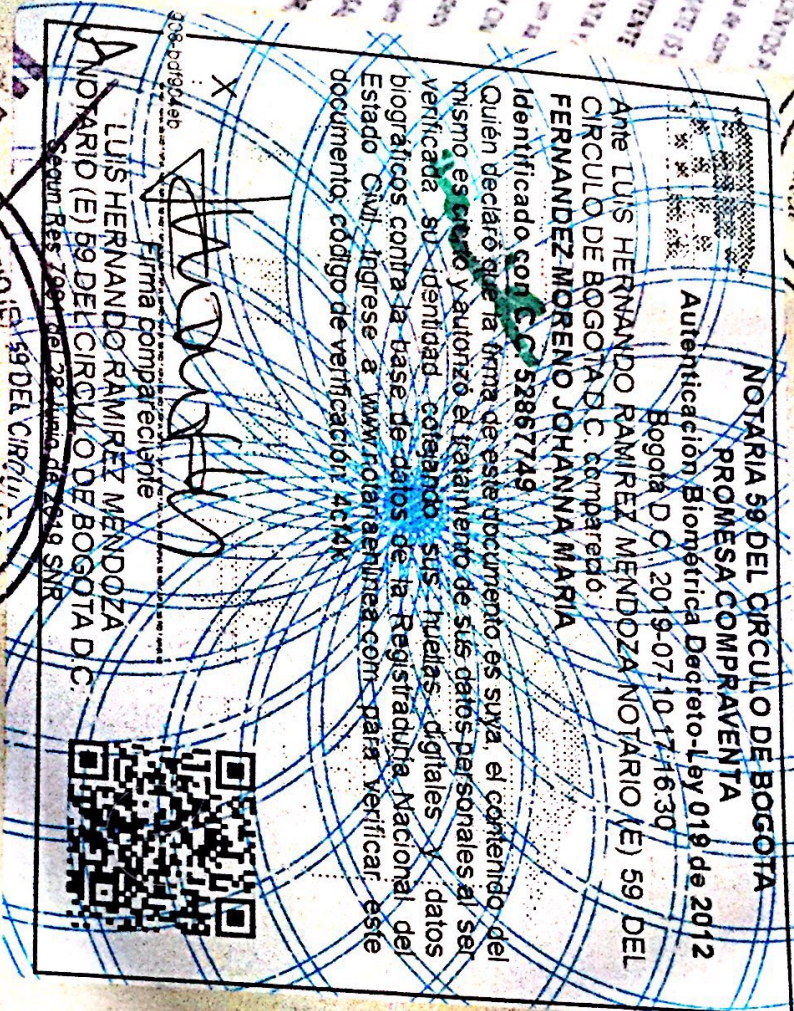 NOTARIA 59 DEL CIRCULO DE BOGOTA
PROMESA COMPRAVENTA
Autenticación Biométrica Decreto-Ley 019 de 2012
Bogotá D.C., 2019-07-10 17:16:30
Ante LUIS HERNANDO RAMIREZ MENDOZA NOTARIO (E) 59 DEL
CIRCULO DE BOGOTA D.C. compareció
FERNANDEZ MORENO JOHANNA MARIA
Identificado con C.C. 52867749
Quién declaró que la firma de este documento es suya, el contenido del
mismo es cierto y autorizó el tratamiento de sus datos personales al ser
verificada su identidad cotejando sus huellas digitales y datos
biográficos contra la base de datos de la Registraduría Nacional del
Estado Civil. Ingrese a www.notariaenlinea.com para verificar este
documento, código de verificación: 4c14k
X
Firma compareciente
LUIS HERNANDO RAMIREZ MENDOZA
NOTARIO (E) 59 DEL CIRCULO DE BOGOTA D.C.
Según Res. del 28 Junio de 2019 SNR
59 DEL